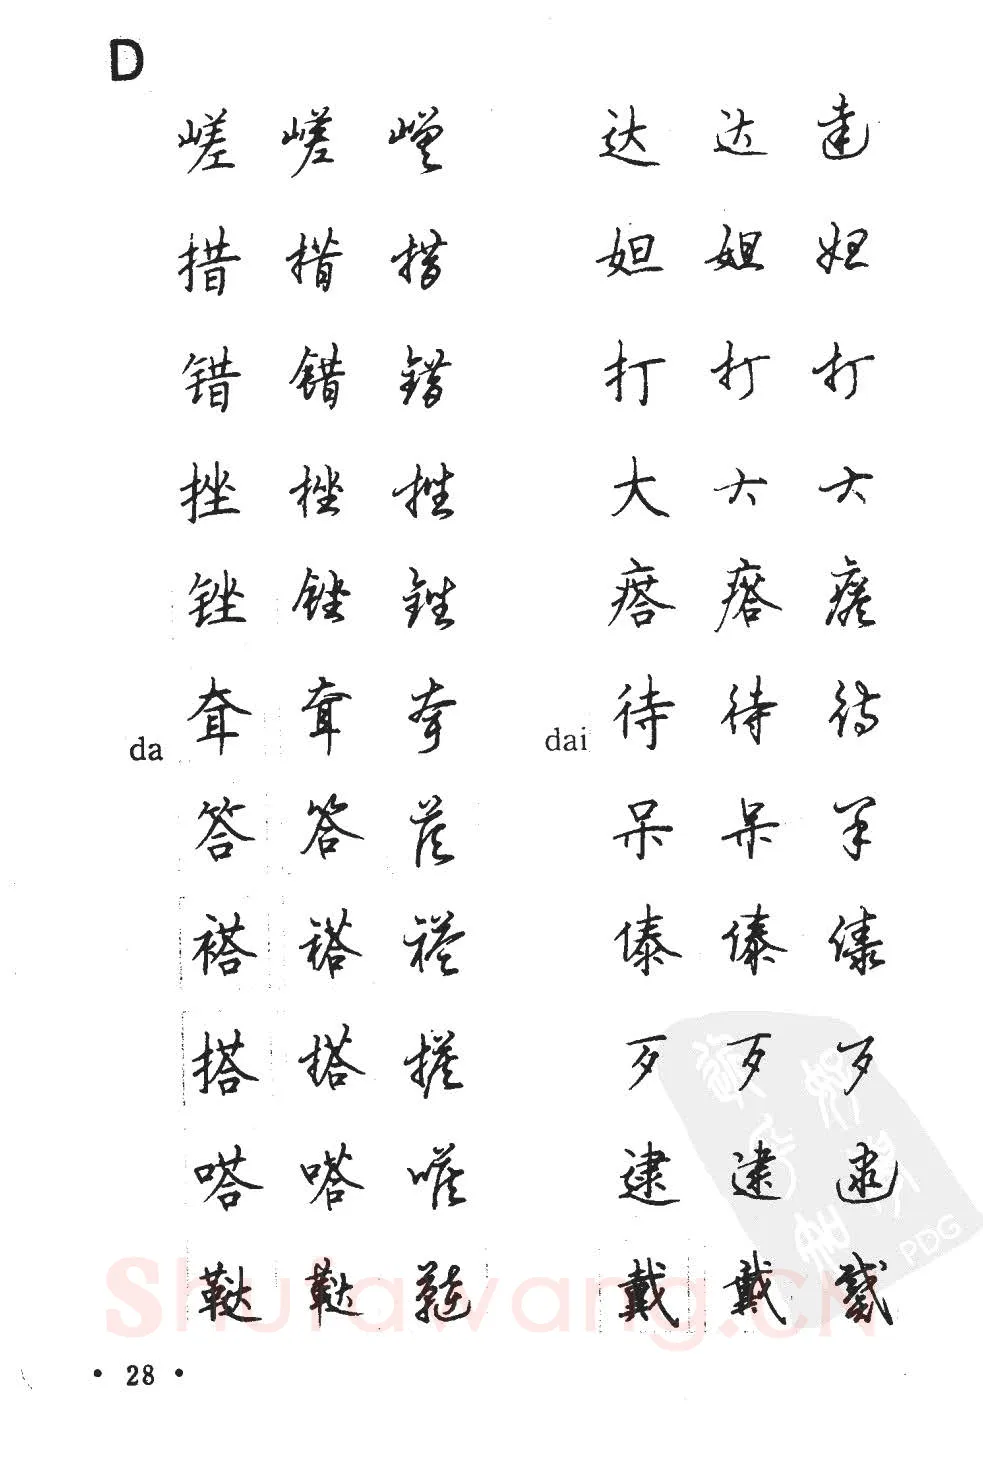 D
嵯 嵯 嵯
措 措 措
错 错 错
挫 挫 挫
锉 锉 锉
da 耷 耷 耷
答 答 答
褡 褡 褡
搭 搭 搭
嗒 嗒 嗒
鞑 鞑 鞑
达 达 达
妲 妲 妲
打 打 打
大 大 大
瘩 瘩 瘩
dai 待 待 待
呆 呆 呆
傣 傣 傣
歹 歹 歹
逮 逮 逮
戴 戴 戴
PDG
Shufawang.CN
• 28 •